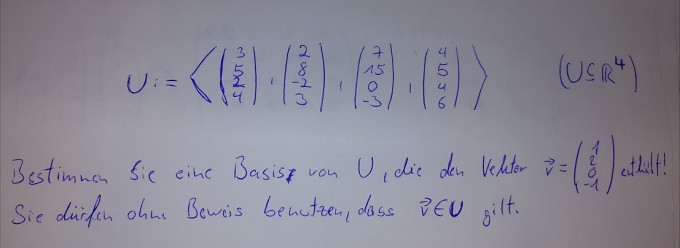 U := ⟨ (3 5 2 4), (2 8 -2 3), (7 15 0 -3), (4 5 4 6) ⟩ (U ⊆ ℝ⁴)
Bestimmen Sie eine Basis von U, die den Vektor v⃗ = (1 2 0 -1) enthält!
Sie dürfen ohne Beweis benutzen, dass v⃗ ∈ U gilt.